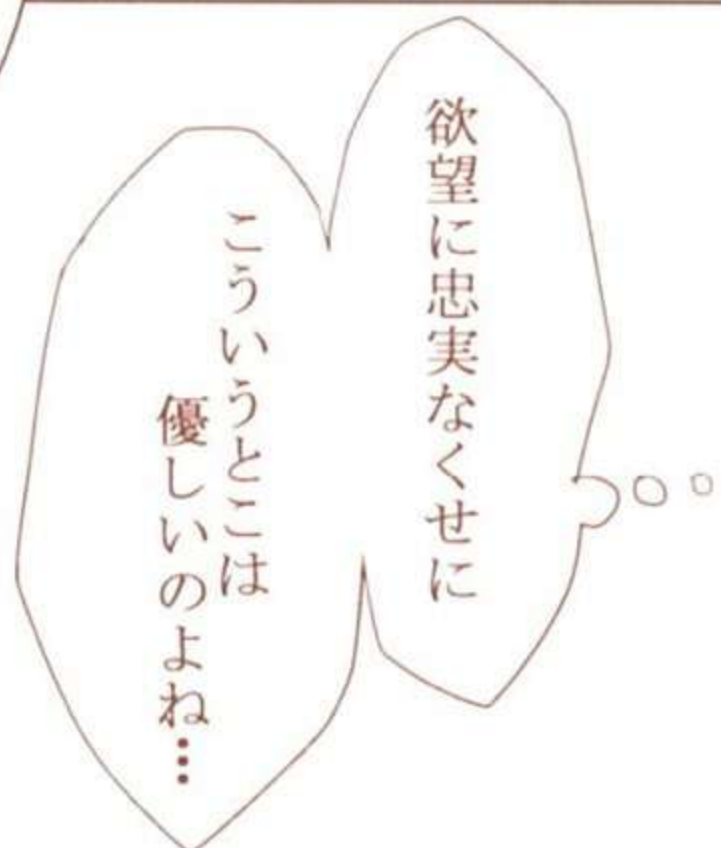 欲望に忠実なくせに
こういうとこは
優しいのよね…